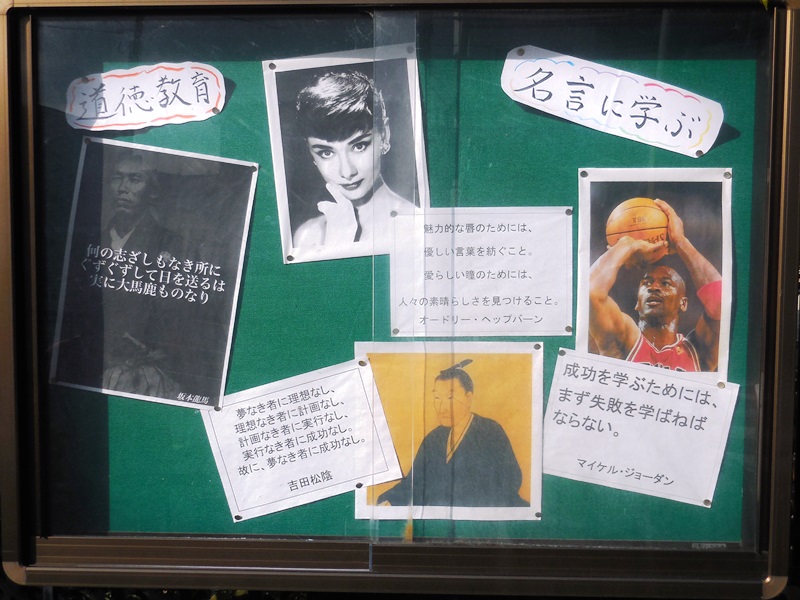 道徳教育
名言に学ぶ
何の志ざしもなき所に
ぐずぐずして日を送るは
実に大馬鹿ものなり
坂本龍馬
魅力的な唇のためには、
優しい言葉を紡ぐこと。
愛らしい瞳のためには、
人々の素晴らしさを見つけること。
オードリー・ヘップバーン
夢なき者に理想なし、
理想なき者に計画なし、
計画なき者に実行なし、
実行なき者に成功なし。
故に、夢なき者に成功なし。
吉田松陰
成功を学ぶためには、
まず失敗を学ばねば
ならない。
マイケル・ジョーダン